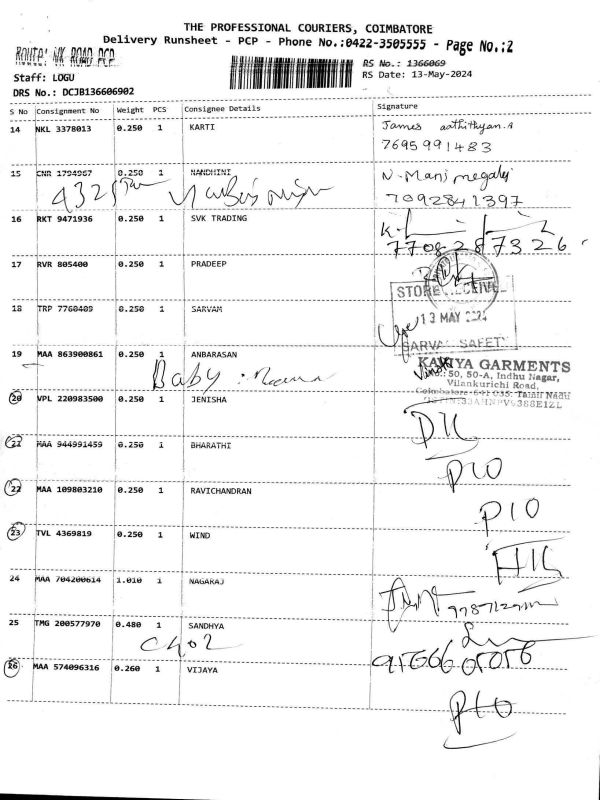 THE PROFESSIONAL COURIERS, COIMBATORE
Delivery Runsheet - PCP - Phone No.:0422-3505555 - Page No.:2
ROUTE: NK ROAD PCP
RS No.: 1366069
Staff: LOGU
RS Date: 13-May-2024
DRS No.: DCJB136606902
S No Consignment No Weight PCS Consignee Details Signature
14 NKL 3378013 0.250 1 KARTI James aathithyan.A
7695991483
15 CNR 1794967 0.250 1 NANDHINI N. Manj megalai
7092841397
16 RKT 9471936 0.250 1 SVK TRADING
7708287326
17 RVR 805400 0.250 1 PRADEEP
STORE RECEIVED
18 TRP 7760409 0.250 1 SARVAM
13 MAY 2024
SARVA SAFETY
19 MAA 863900861 0.250 1 ANBARASAN
KAVIYA GARMENTS
50, 50-A, Indhu Nagar,
Vilankurichi Road,
Coimbatore-641 035. Tamil Nadu
Baby
20 VPL 220983500 0.250 1 JENISHA
DIL
21 MAA 944991459 0.250 1 BHARATHI
PIO
22 MAA 109803210 0.250 1 RAVICHANDRAN
PIO
23 TVL 4369819 0.250 1 WIND
24 MAA 704200614 1.010 1 NAGARAJ
25 TMG 200577970 0.480 1 SANDHYA
26 MAA 574096316 0.260 1 VIJAYA
PIO